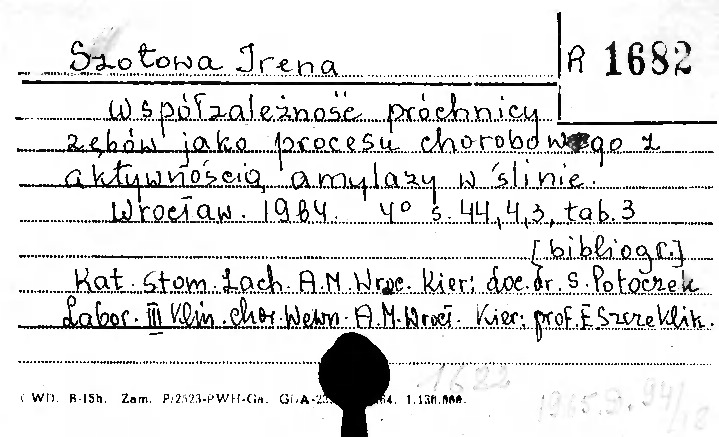 Szotowa Irena
R 1682
Współzależność próchnicy
zębów jako procesu chorobowego z
aktywnością amylazy w ślinie.
Wrocław. 1964. 4° s. 44,4,3, tab. 3
[bibliogr.]
Kat. Stom. Zach. A.M. Wroc. Kier: doc. dr. S. Potoczek
Labor. III Klin. chor. Wewn. A.M. Wrocł. Kier: prof. E Szczeklik.
WD. B-15h. Zam. P/2523-PWH-Ga. GDA- 64. 1.130.000.
1682
1965.9. 94/18